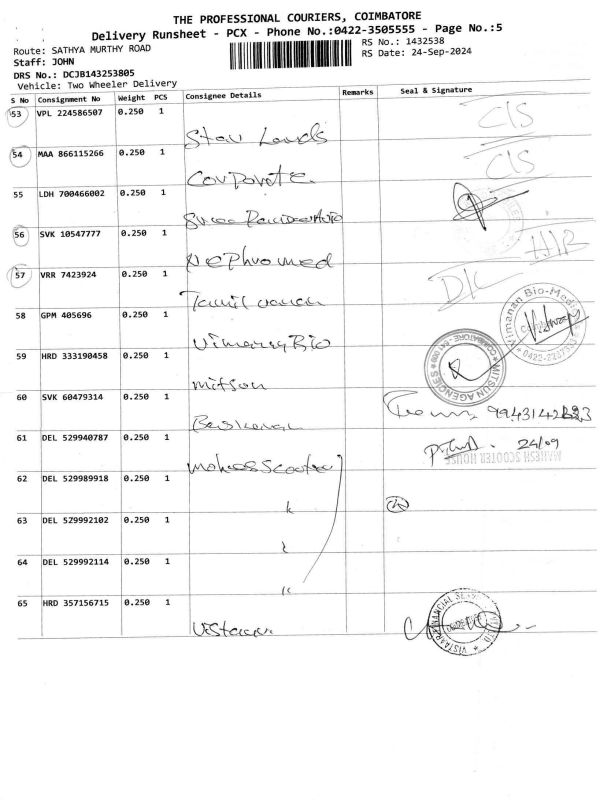 THE PROFESSIONAL COURIERS, COIMBATORE
Delivery Runsheet - PCX - Phone No.:0422-3505555 - Page No.:5
Route: SATHYA MURTHY ROAD
RS No.: 1432538
Staff: JOHN
RS Date: 24-Sep-2024
DRS No.: DCJB143253805
Vehicle: Two Wheeler Delivery
S No Consignment No Weight PCS Consignee Details Remarks Seal & Signature
53 VPL 224586507 0.250 1
Star
54 MAA 866115266 0.250 1
Corporate
55 LDH 700466002 0.250 1
56 SVK 10547777 0.250 1
Nephromed
57 VRR 7423924 0.250 1
D/L
58 GPM 405696 0.250 1
Vimanan Bio-Med
0422-
59 HRD 333190458 0.250 1
Mitson
MITSUN AGENCIES
60 SVK 60479314 0.250 1
61 DEL 529940787 0.250 1
24/09
MAHESH SCOOTER HOUSE
62 DEL 529989918 0.250 1
63 DEL 529992102 0.250 1
64 DEL 529992114 0.250 1
65 HRD 357156715 0.250 1